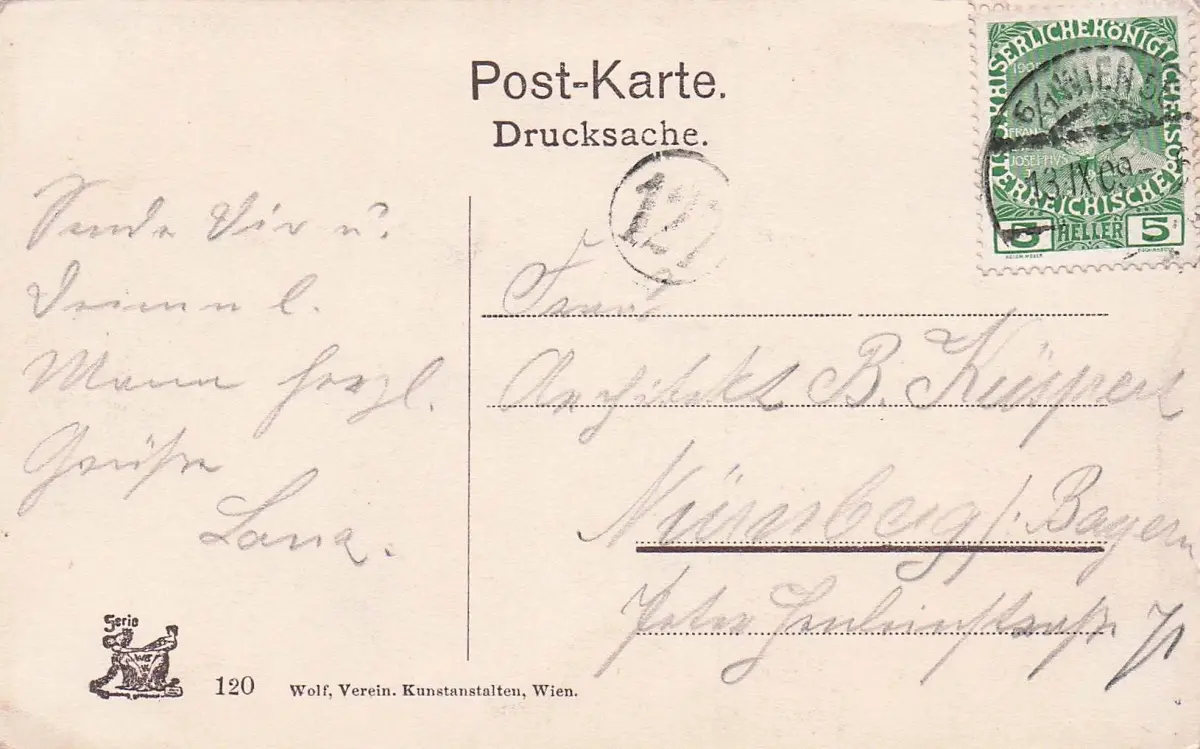 Post-Karte.
Drucksache.
KAISERLICHE KÖNIGLICHE ÖSTERREICHISCHE POST
1908
FRAN
JOSEPHVS
5 HELLER 5
WIEN
13.IX.09
121
Sende Dir u.
Deinem l.
Mann herzl.
Grüße
Frau
Architekt B. Küspert
Nürnberg / Bayern
Peter Henleinstraße
Serie
120
Wolf, Verein. Kunstanstalten, Wien.